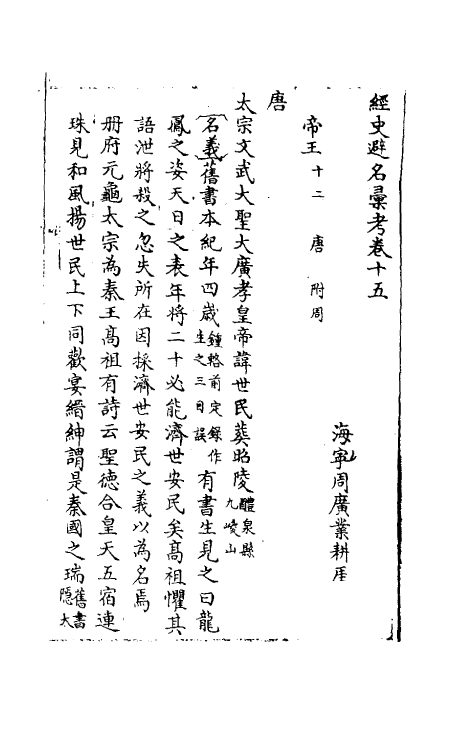 經史避名彙考卷十五
海寧周廣業耕厓
帝王十二 唐 附周
唐
太宗文武大聖大廣孝皇帝諱世民葬昭陵醴泉縣九嵕山
名義舊書本紀年四歲鍾輅前定錄作生之三日誤有書生見之曰龍
鳳之姿天日之表年將二十必能濟世安民矣高祖懼其
語泄將殺之忽失所在因採濟世安民之義以為名焉
冊府元龜太宗為秦王高祖有詩云聖德合皇天五宿連
珠見和風揚世民上下同歡宴縉紳謂是秦國之瑞舊書隱太